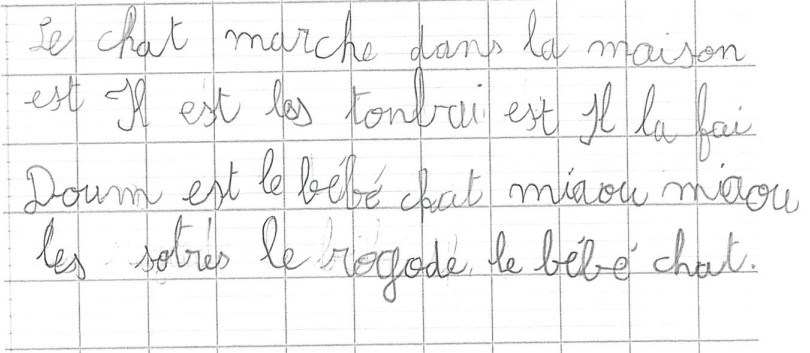 Le chat marche dans la maison
est Il est les tonbrai est Il la fai
Doum est le bébé chat miaou miaou
les sotrés le rogode le bébé chat.